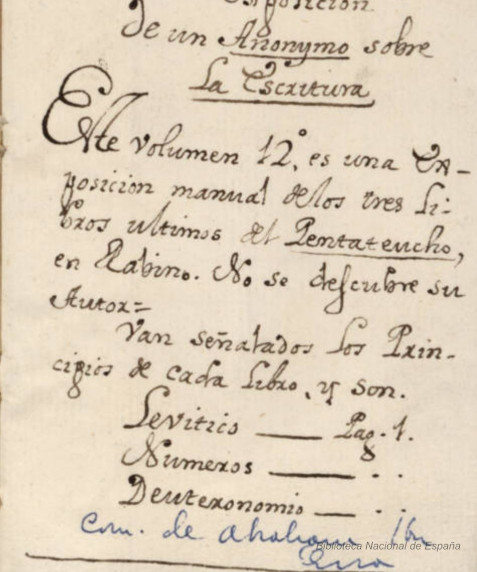 Exposicion
de un Anonymo sobre
La Escritura
Este volumen 12º, es una Ex-
posicion manual delos tres Li-
bros ultimos del Pentateucho,
en Rabino. No se descubre su
Autor=
Van señalados los Prin-
cipios de cada Libro, y son.
Levitico —— Pag. 1.
Numeros —— . .
Deuteronomio — . .
Com. de Abraham Ibn
Ezra
Biblioteca Nacional de España